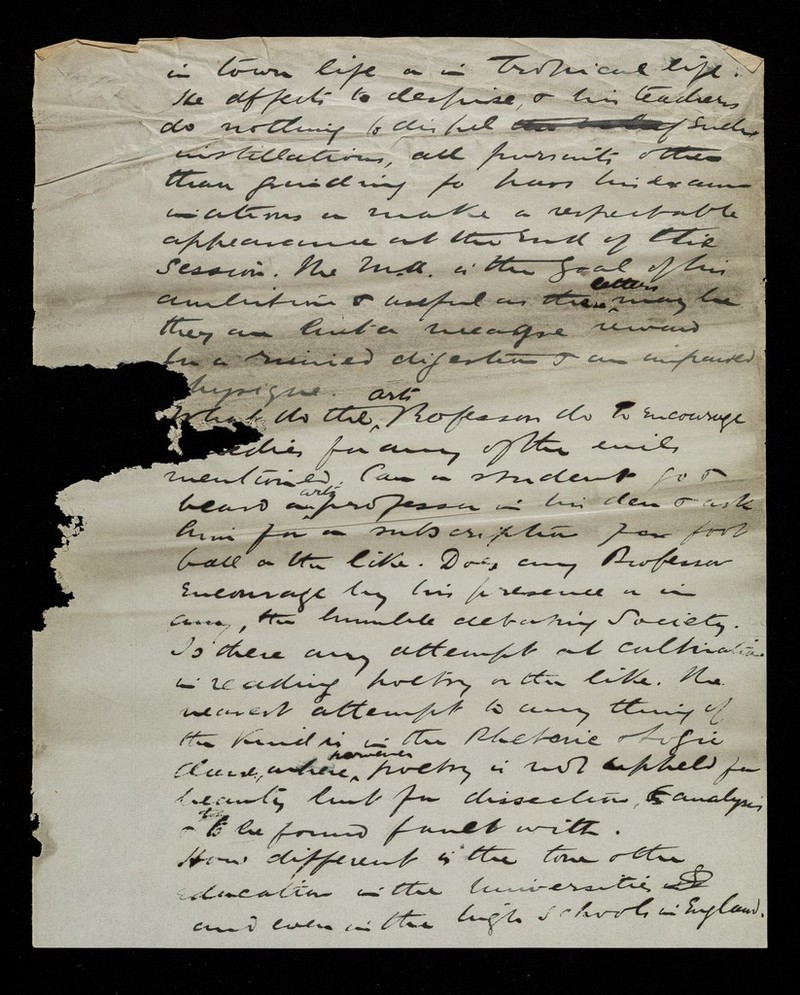 in town life or in tropical life.
He affects to despise, & his teachers
do nothing to dispel such
instillations, all pursuits other
than grinding to pass his exam
inations or make a respectable
appearance at the End of the
Session. The M.A. is the Goal of his
ambition & useful as these letters may be
they are but a meagre reward
for a ruined digestion & an impaired
physique.
What do the arts Professors do to Encourage
remedies for any of the evils
mentioned. Can a student go &
beard an arts professor in his den & ask
him for a subscription for foot
ball or the like. Does any Professor
Encourage by his presence or in
any, the humble debating Society.
Is there any attempt at cultivation
in reading poetry or the like. The
nearest attempt to any thing of
the kind is in the Rhetoric & Logic
Class, where however, poetry is not upheld for
beauty but for dissection, & analysis
& to be found fault with.
How different is the tone of the
education in the Universities
and even in the high Schools in England.